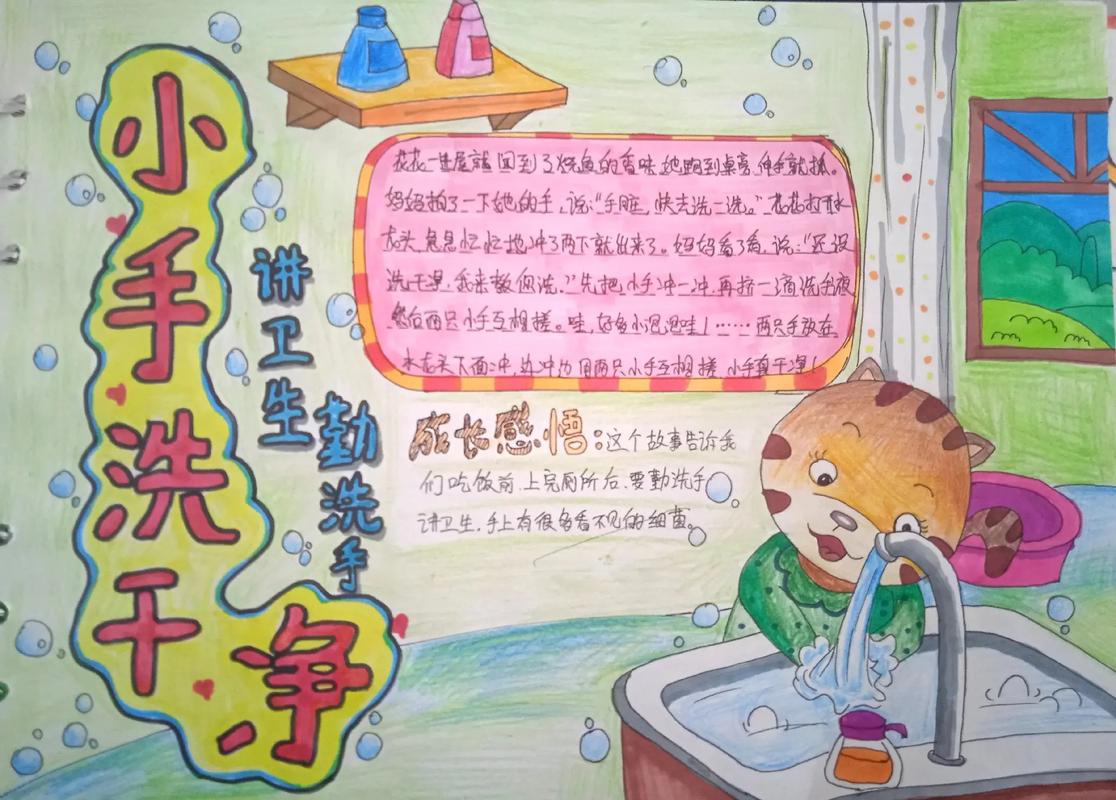 小手洗干净
讲卫生
勤洗手
花花一进屋就回到了烧鱼的香味她跑到桌旁,伸手就抓。
妈妈拍了一下她的手,说:“手脏,快去洗一洗。”花花打开水
龙头,急急忙忙地冲了两下就出来了。妈妈看了看,说:“还没
洗干净,我来教你洗。”先把小手冲一冲,再挤一滴洗手液
然后两只小手互相搓。哇,好多小泡泡哇!……两只手放在
水龙头下面冲,边冲边用两只小手互相搓,小手真干净!
成长感悟:这个故事告诉我
们吃饭前.上完厕所后.要勤洗手
讲卫生.手上有很多看不见的细菌。